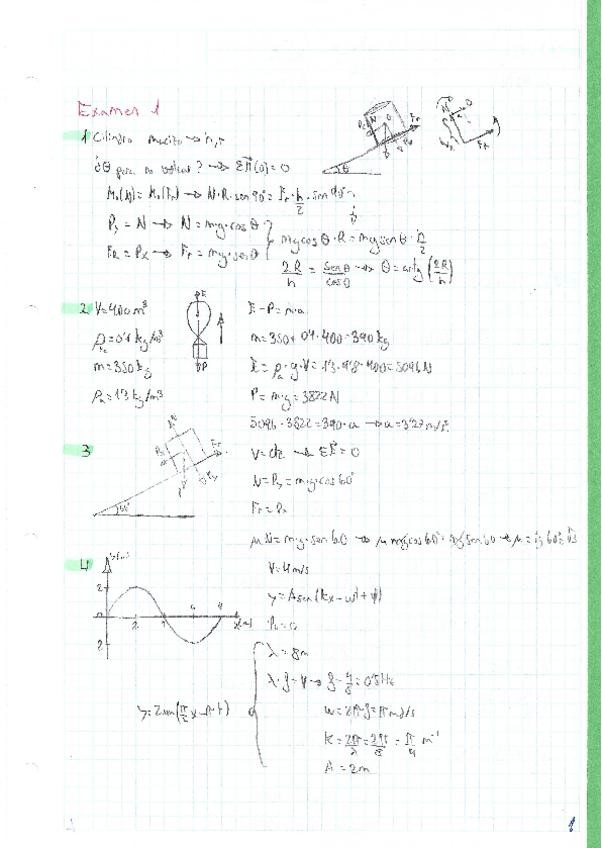 Examen 1
1 Cilindro macizo → h, r
¿θ para no volcar? → ΣM(O) = 0
M₀(N) = M₀(Fr) → N·R·sen 90° = Fr·h/2·sin 90°
Py = N → N = m·g·cos θ
FR = Px → Fr = m·g·sen θ
mg cos θ·R = mg sen θ·h/2
2R/h = sen θ/cos θ → θ = arctg (2R/h)
θ
2 V = 400 m³
ρ = 0'1 kg/m³
m = 350 kg
ρa = 1'3 kg/m³
E
P
E - P = m·a
m = 350 + 0'1·400 = 390 kg
E = ρa·g·V = 1'3·9'8·400 = 5096 N
P = m·g = 3822 N
5096 - 3822 = 390·a → a = 3'27 m/s²
3
60°
V = cte → ΣF = 0
N = Py = m·g·cos 60°
Fr = Px
μ N = m·g·sen 60 → μ mg cos 60° = mg sen 60 → μ = tg 60 = √3
4
V = 4 m/s
y = A sen (kx - wt + φ)
λ = 8 m
λ·f = v → f = 4/8 = 0'5 Hz
w = 2πf = π rad/s
K = 2π/λ = 2π/8 = π/4 m⁻¹
A = 2 m
1